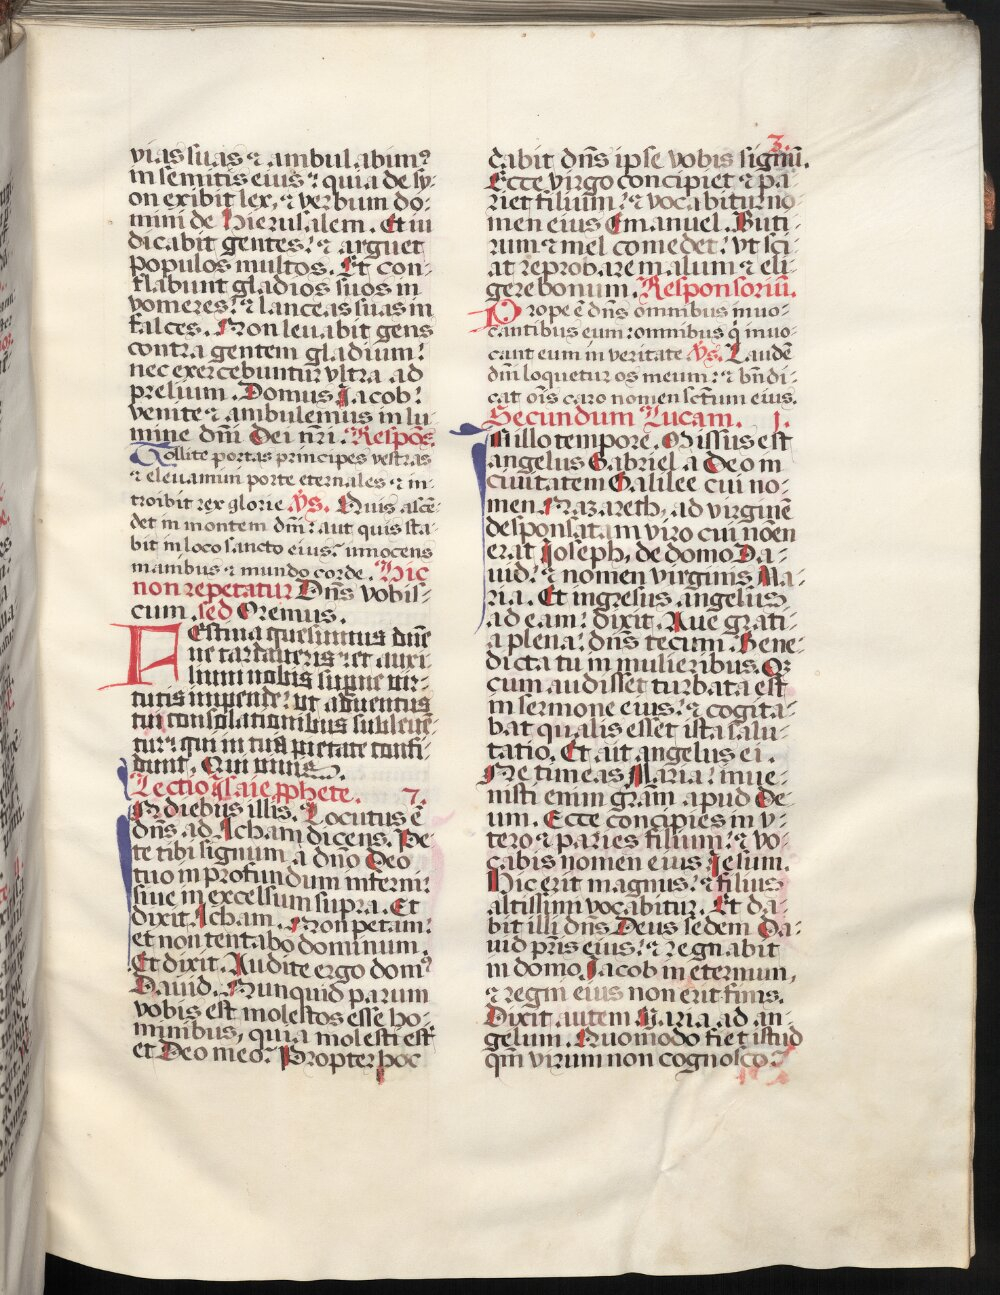 3.
vias suas ⁊ ambulabim⁹
in semitis eius: quia de sy-
on exibit lex, ⁊ verbum do-
mini de Hierusalem. Et iu
dicabit gentes: ⁊ arguet
populos multos. Et con-
flabunt gladios suos in
vomeres: ⁊ lanceas suas in
falces. Non leuabit gens
contra gentem gladium:
nec exercebuntur vltra ad
prelium. Domus Jacob:
venite ⁊ ambulemus in lu-
mine dñi Dei nr̃i. Respõs.
Tollite portas principes vestras
⁊ eleuamini porte eternales ⁊ in-
troibit rex glorie. Vs. Quis ascẽ-
det in montem dñi: aut quis sta-
bit in loco sancto eius: innocens
manibus ⁊ mundo corde. Hic
non repetatur Dñs vobis-
cum. sed Oremus.
FEstina quesumus dñe
ne tardaueris: et auxi-
lium nobis supne vir-
tutis impende: ut aduentus
tui consolationibus subleuẽ-
tur: qui in tua pietate confi-
dunt. Qui viuis.
Lectio Isaie pphete. 7.
IN diebus illis. Locutus ẽ
dñs ad Acham dicens. Pe-
te tibi signum a dño Deo
tuo in profundum inferni:
siue in excelsum supra. Et
dixit Acham. Non petam:
et non tentabo dominum.
Et dixit. Audite ergo dom⁹
Dauid. Nunquid parum
vobis est molestos esse ho-
minibus, quia molesti est
et Deo meo? Propter hoc
dabit dñs ipse vobis signũ.
Ecce virgo concipiet ⁊ pa-
riet filium: ⁊ vocabitur no-
men eius Emanuel. Buti-
rum ⁊ mel comedet: vt sci-
at reprobare malum ⁊ eli-
gere bonum. Responsoriũ.
Prope ẽ dñs omnibus inuo-
cantibus eum: omnibus q̃ inuo-
cant eum in veritate. Vs. Laudẽ
dñi loquetur os meum: ⁊ bñdi-
cat oĩs caro nomen sctũm eius.
Secundum Lucam. 1.
IN illo tempore. Missus est
angelus Gabriel a Deo in
ciuitatem Galilee cui no-
men Nazareth, ad virginẽ
desponsatam viro cui noẽn
erat Joseph, de domo Da-
uid: ⁊ nomen virginis Ma-
ria. Et ingresus angelus
ad eam: dixit. Aue grati-
a plena: dñs tecum. Bene-
dicta tu in mulieribus. Q̃
cum audisset turbata est
in sermone eius: ⁊ cogita-
bat qualis esset ista salu-
tatio. Et ait angelus ei.
Ne timeas Maria: inue-
nisti enim grãm apud De-
um. Ecce concipies in v-
tero ⁊ paries filium: ⁊ vo-
cabis nomen eius Jesum.
Hic erit magnus: ⁊ filius
altissimi vocabitur. Et da-
bit illi dñs Deus sedem Da-
uid pr̃is eius: ⁊ regnabit
in domo Jacob in eternum,
⁊ regni eius non erit finis.
Dixit autem Maria ad an-
gelum. Quomodo fiet istud
qm̃ virum non cognosco?